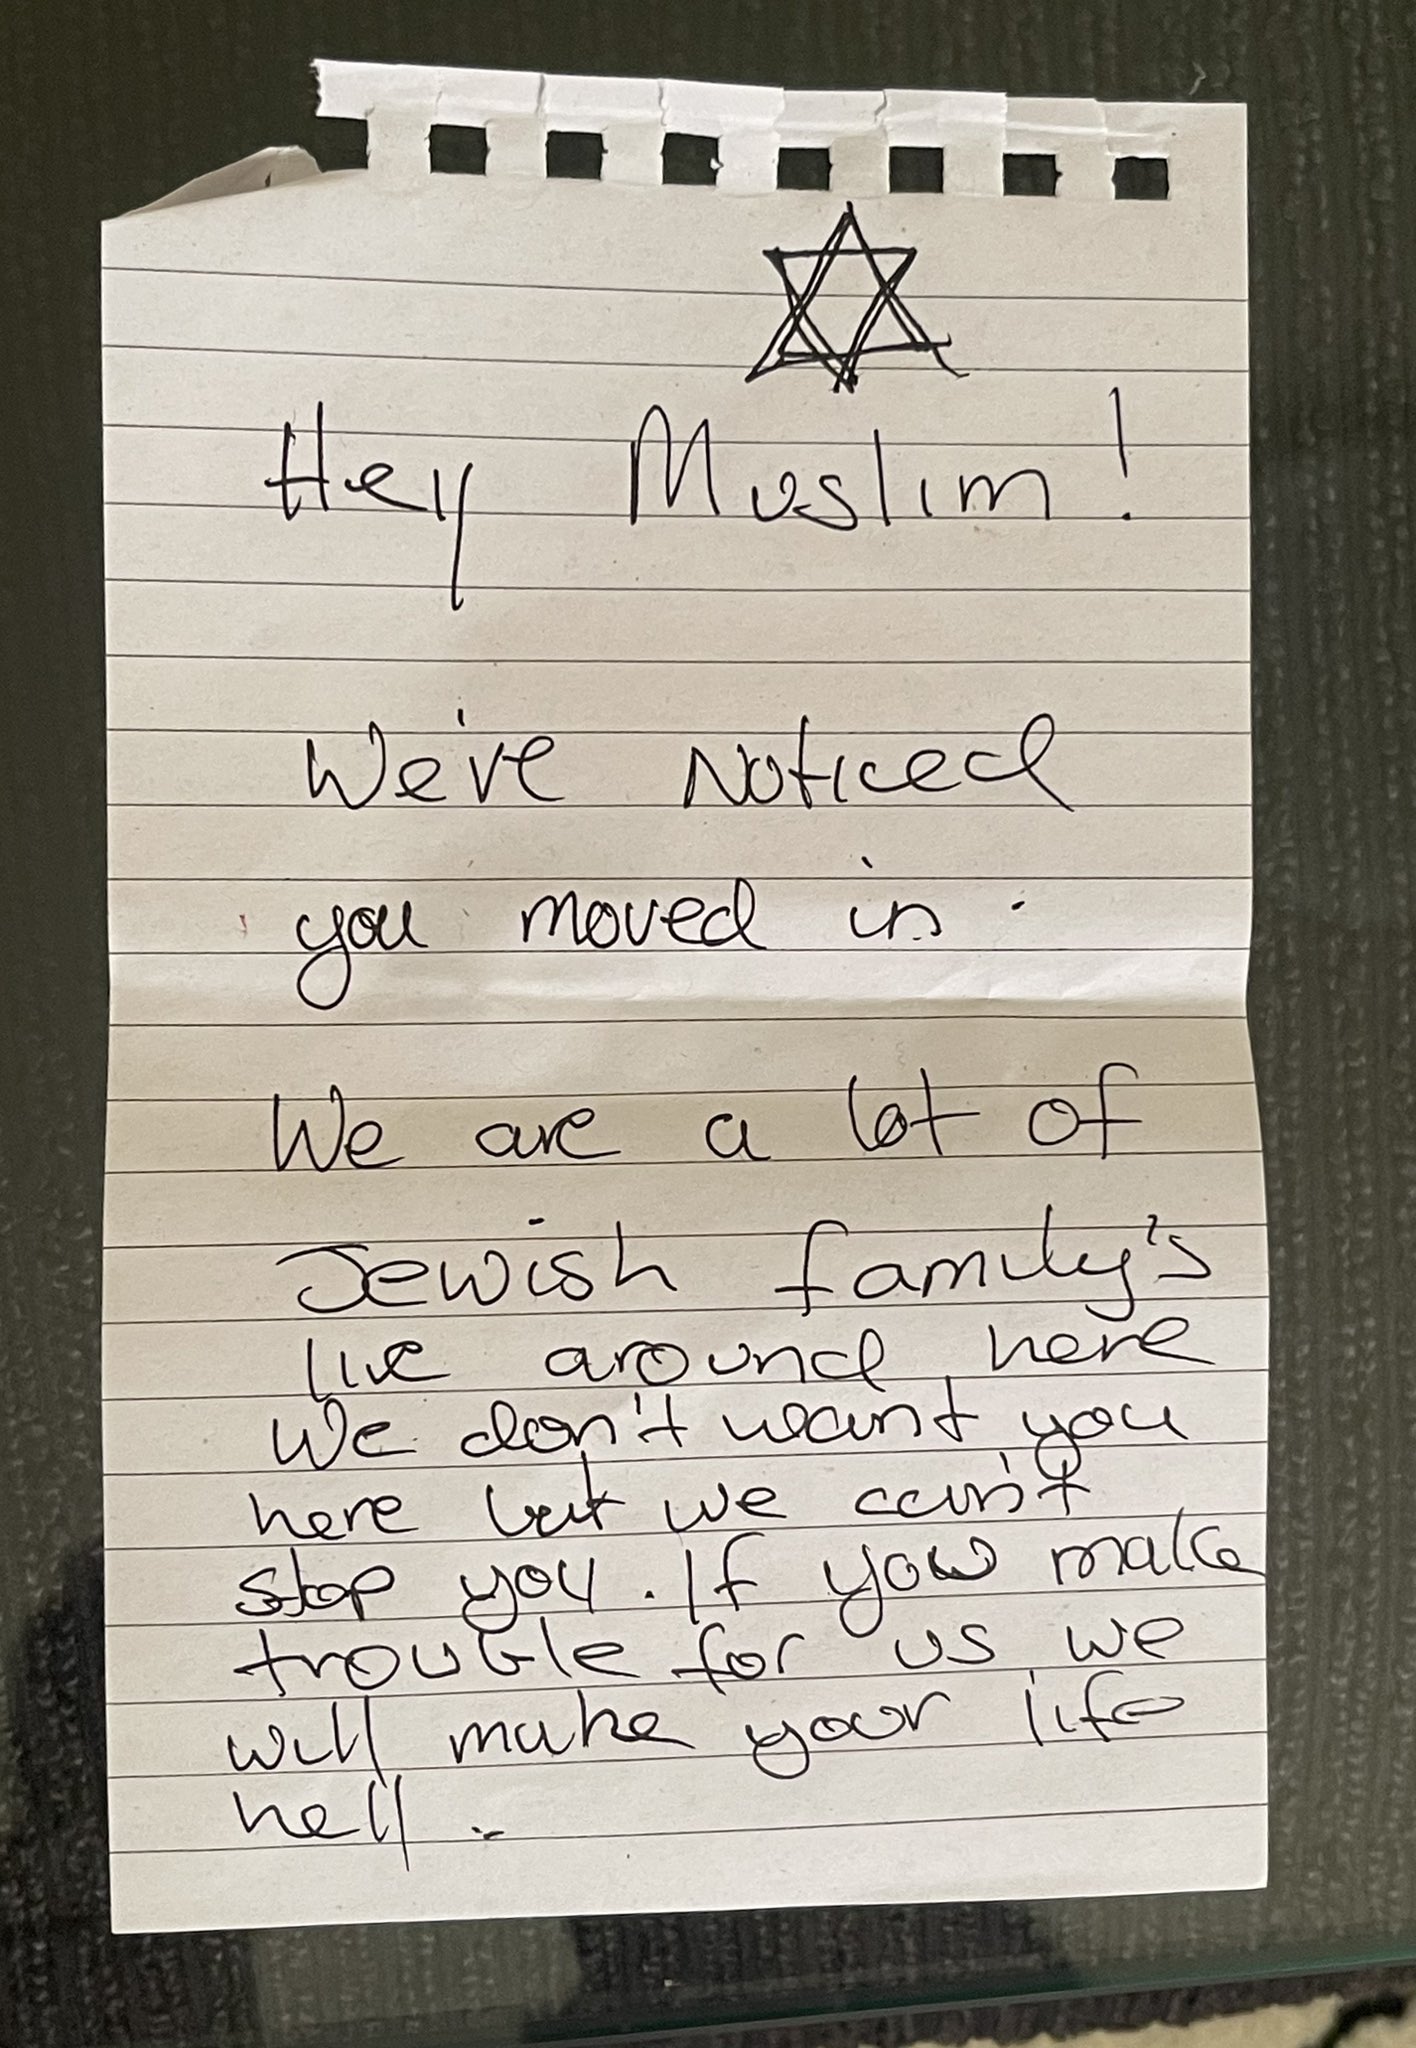 Hey Muslim!
We've Noticed
you moved in.
We are a lot of
Jewish family's
live around here
We don't want you
here but we can't
stop you. If you make
trouble for us we
will make your life
hell.